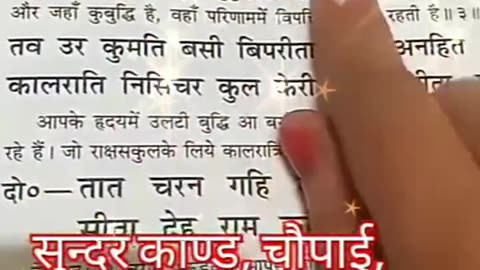 और जहाँ कुबुद्धि है, वहाँ परिणाममें रहती है॥३॥
तव उर कुमति बसी बिपरीता अनहित
कालराति निसिचर कुल केरी
आपके हृदयमें उलटी बुद्धि आ
रहे हैं। जो राक्षसकुलके लिये
दो०— तात चरन गहि
सीता देहु राम
सुन्दर काण्ड, चौपाई,